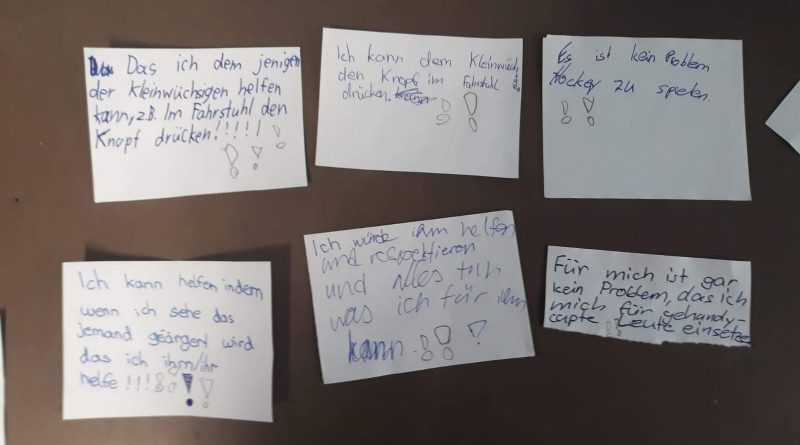 Das ich dem jenigen
der Kleinwüchsigen helfen
kann, z.B. Im Fahrstuhl den
Knopf drücken!!!!!
Ich kann dem Kleinwüch
den Knopf im Fahrstuhl
drücken.
Es ist kein Problem
Hocker zu spielen.
Ich kann helfen indem
wenn ich sehe das
jemand geärgert wird
das ich ihm/ihr
helfe!!!
Ich würde ihm helfen
und respektieren
und alles tuh
was ich für ihn
kann.
Für mich ist gar
kein Problem, das ich
mich für gehandy-
capte Leute einsetze